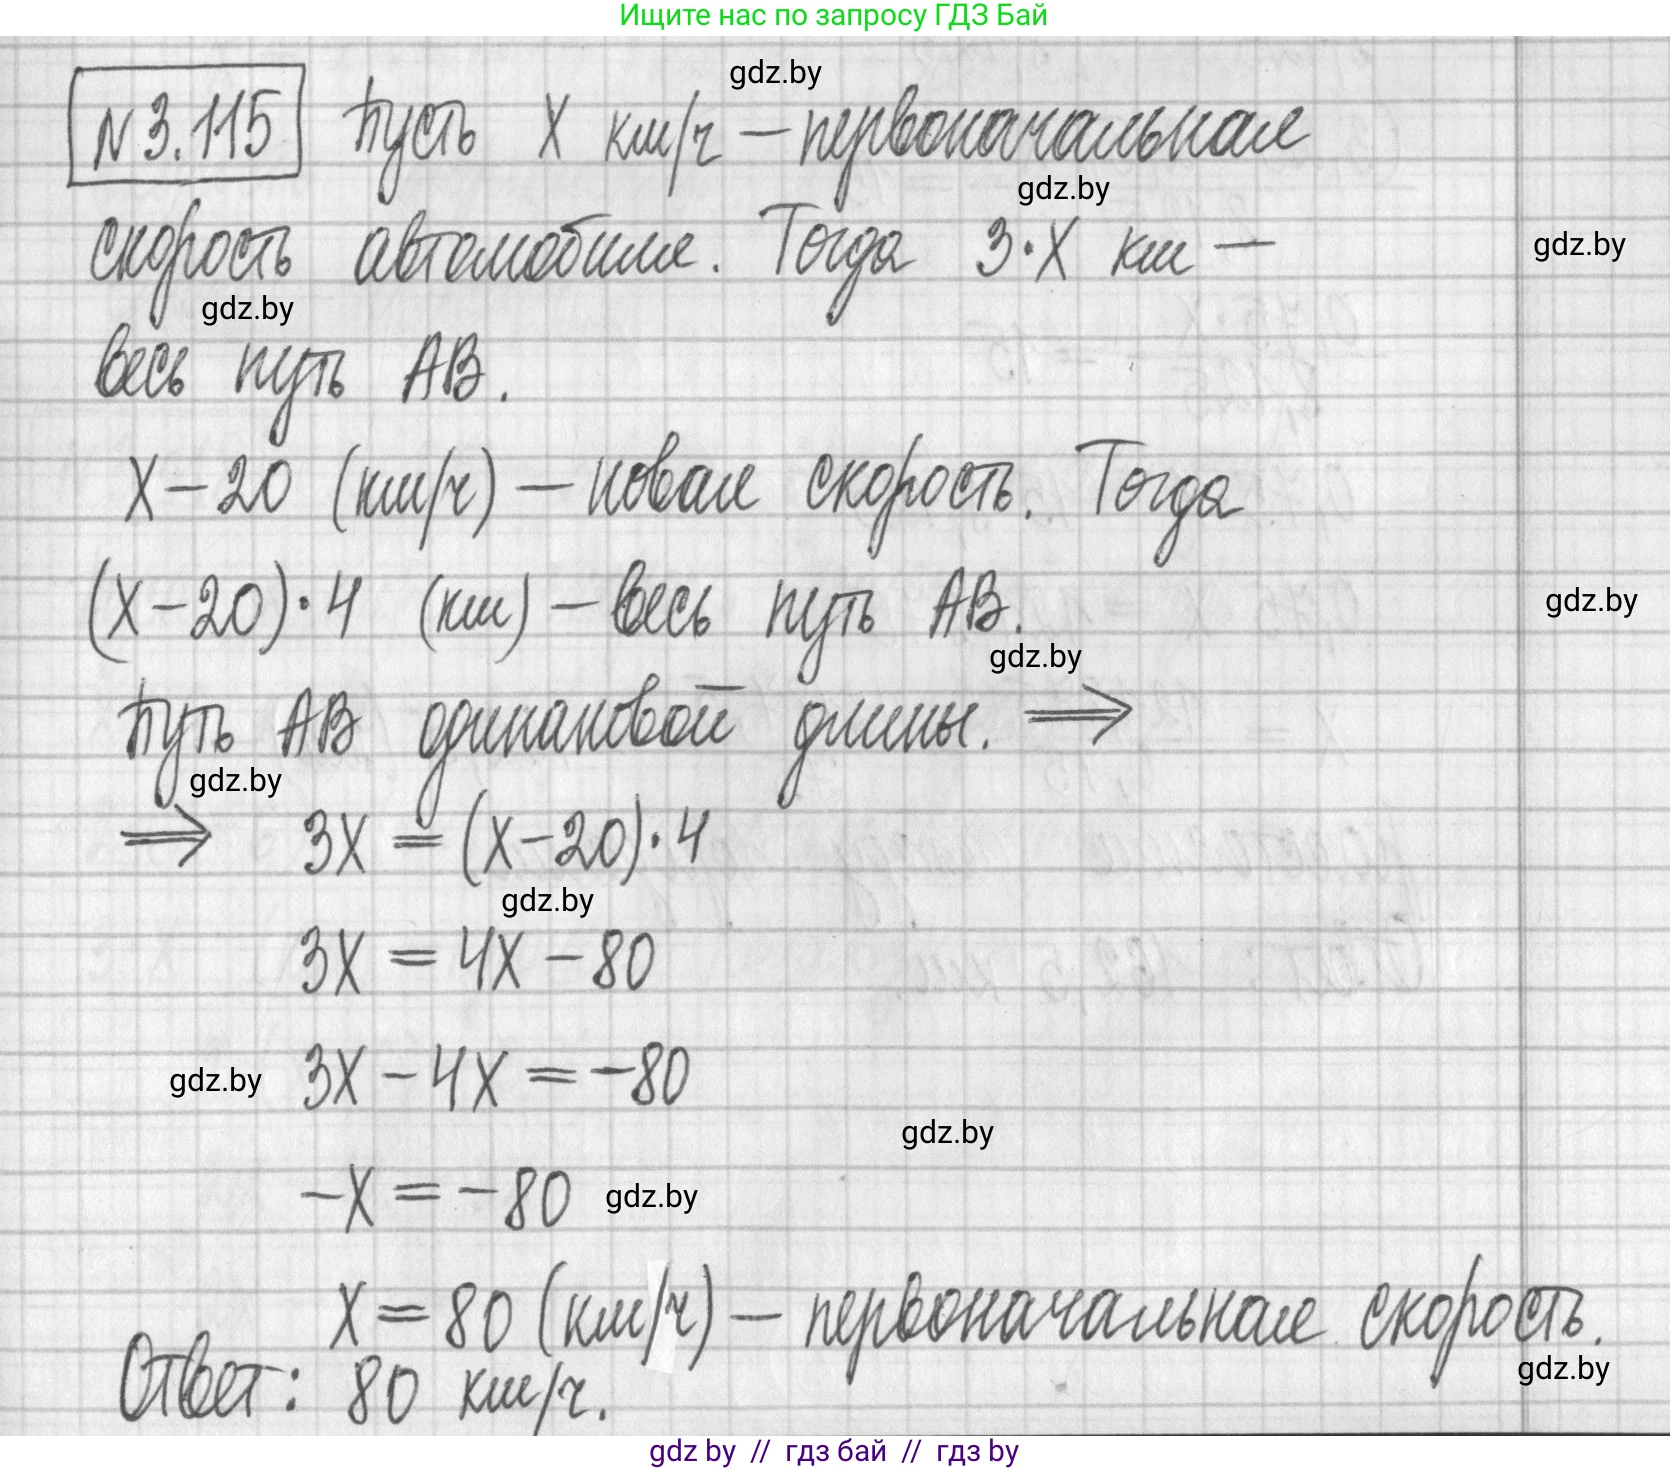 Ищите нас по запросу ГДЗ Бай
gdz.by
N 3.115 Пусть X км/ч — первоначальная
gdz.by
скорость автомобиля. Тогда 3·X км —
gdz.by
gdz.by
весь путь AB.
X - 20 (км/ч) — новая скорость. Тогда
(X - 20)·4 (км) — весь путь AB.
gdz.by
gdz.by
Путь AB одинаковой длины. ⟹
gdz.by
⟹ 3X = (X - 20)·4
gdz.by
3X = 4X - 80
gdz.by 3X - 4X = -80
gdz.by
-X = -80 gdz.by
X = 80 (км/ч) — первоначальная скорость.
gdz.by
Ответ: 80 км/ч.
gdz by // гдз бай // гдз by